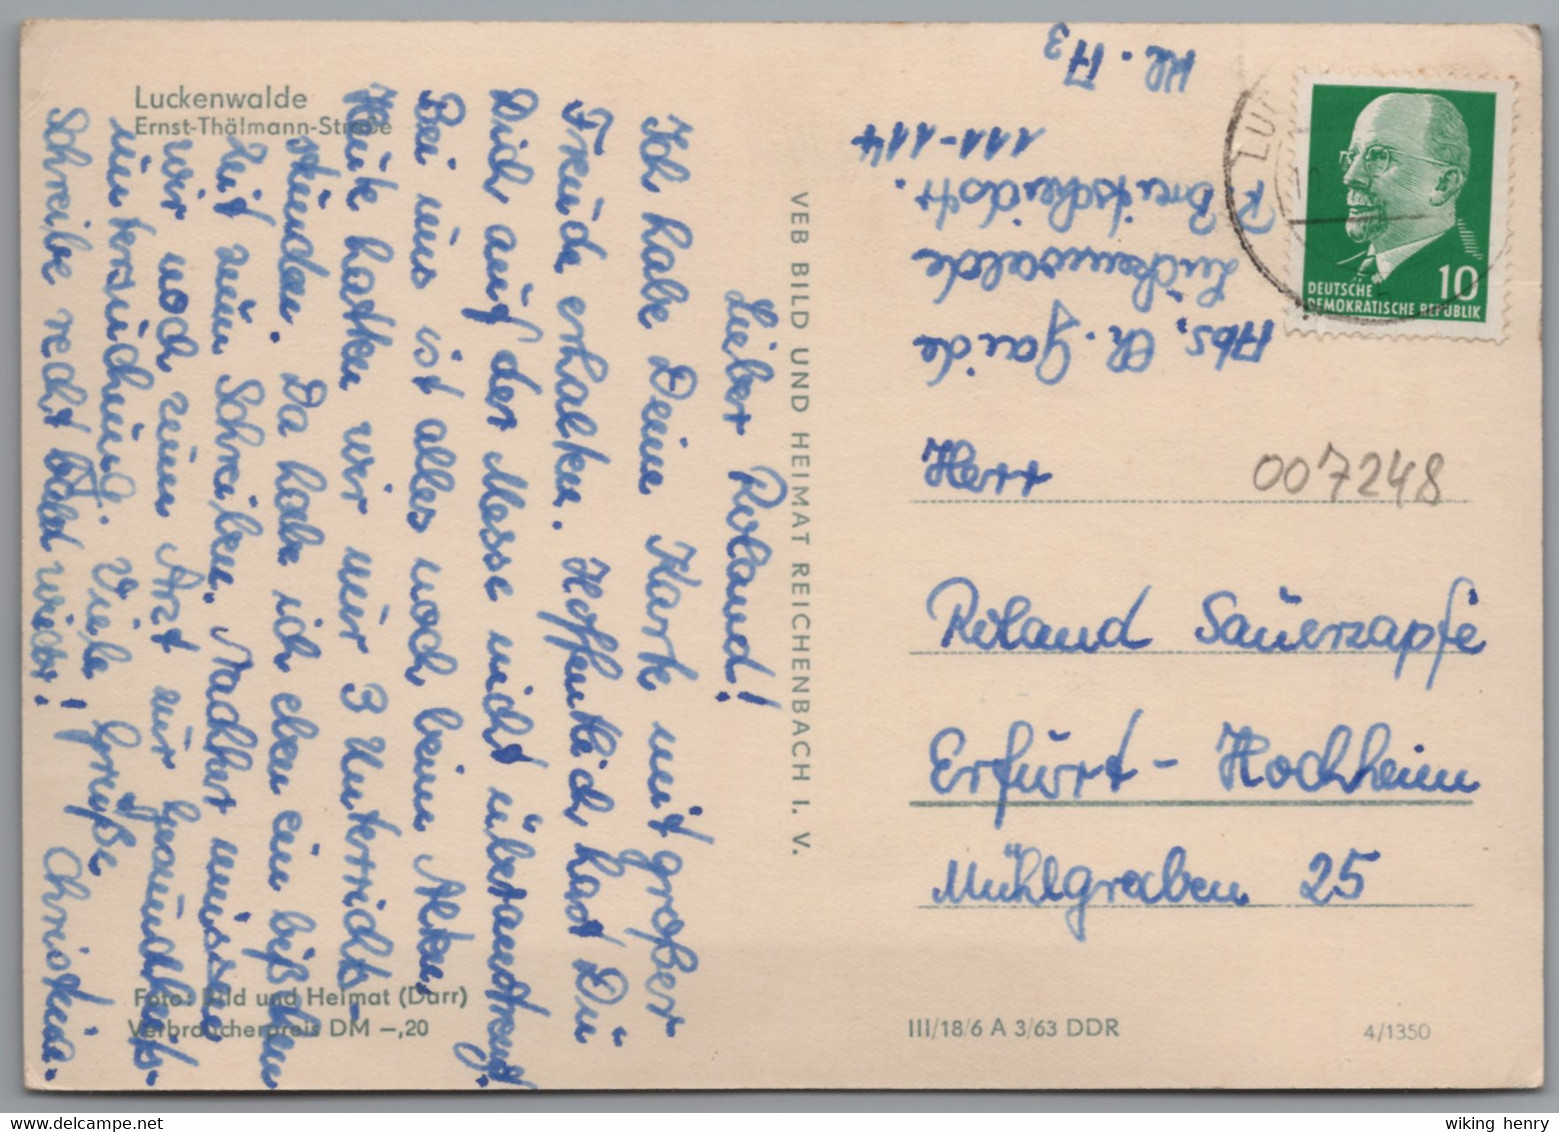 Luckenwalde
Ernst-Thälmann-Straße
Lieber Roland!
Ich habe Deine Karte mit großer
Freude erhalten. Hoffentlich hast Du
Dich auf der Messe nicht überanstrengt.
Bei uns ist alles noch beim Alten.
Heute hatten wir nur 3 Unterrichts-
stunden. Da habe ich eben ein bißchen
Zeit zum Schreiben. Nachher müssen
wir noch zum Arzt zur Gesundheits-
untersuchung. Viele Grüße
Schreibe recht bald wieder! Christina.
Foto: Bild und Heimat (Darr)
Verbraucherpreis DM —,20
VEB BILD UND HEIMAT REICHENBACH I. V.
Abs. Ch. Gaide
Luckenwalde
R. Breitscheidstr.
111-114
Kl. A3
LU
DEUTSCHE
DEMOKRATISCHE REPUBLIK
10
Herr
007248
Roland Sauerzapfe
Erfurt - Hochheim
Mühlgraben 25
III/18/6 A 3/63 DDR
4/1350
wiking henry